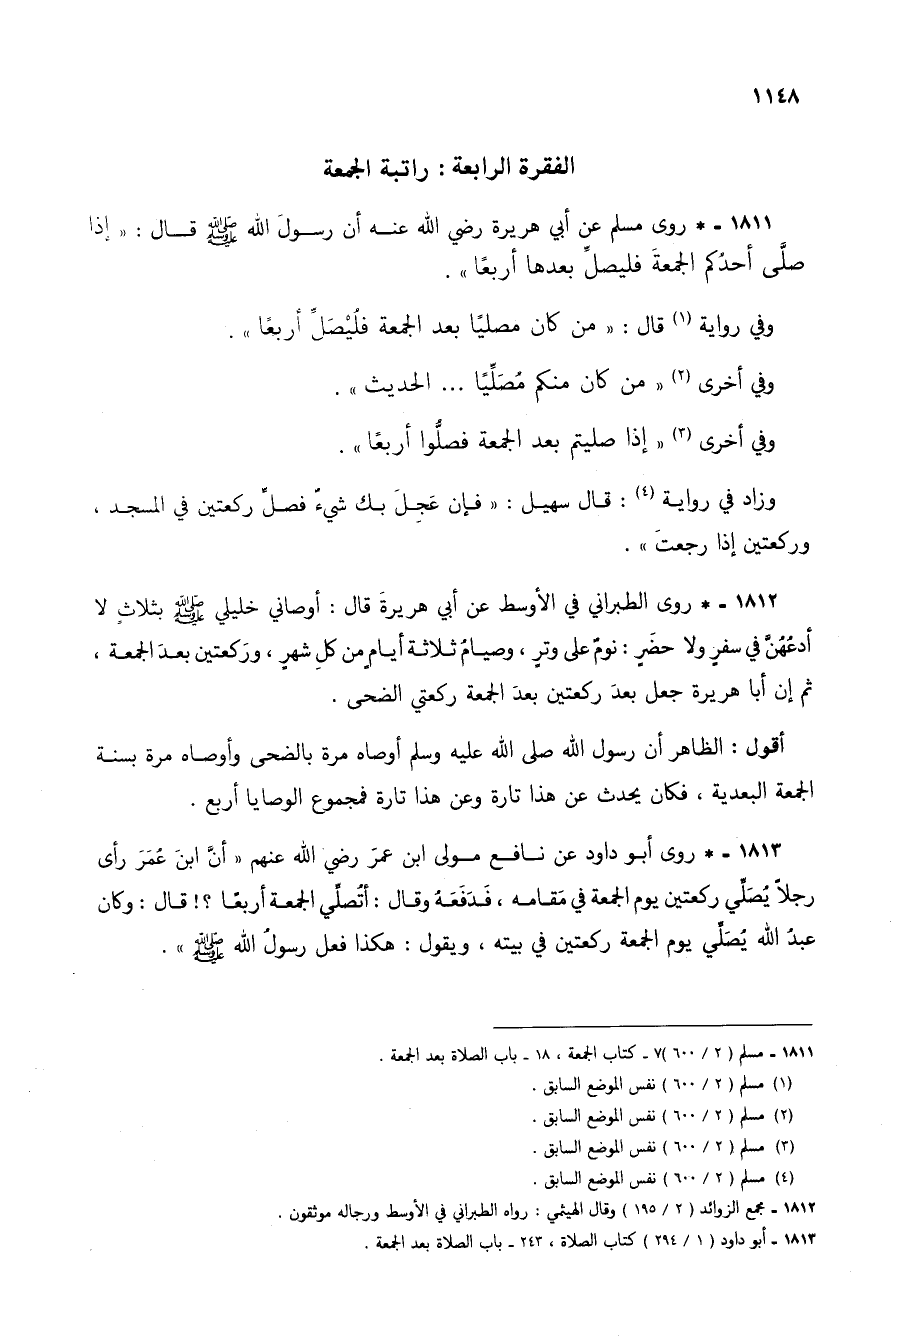 ١١٤٨
الفقرة الرابعة : راتبة الجمعة
١٨١١ - * روى مسلم عن أبي هريرة رضي الله عنه أن رسولَ الله ﷺ قال : « إذا
صلَّى أحدُكم الجمعةَ فليصلِّ بعدها أربعًا » .
وفي رواية (١) قال : « من كان مصليًا بعد الجمعة فلْيُصَلِّ أربعًا » .
وفي أخرى (٢) « من كان منكم مُصَلِّيًا ... الحديث » .
وفي أخرى (٣) « إذا صليتم بعد الجمعة فصلُّوا أربعًا » .
وزاد في رواية (٤) : قال سهيل : « فإن عَجِلَ بك شيءٌ فصلِّ ركعتين في المسجد ،
وركعتين إذا رجعتَ » .
١٨١٢ - * روى الطبراني في الأوسط عن أبي هريرةَ قال : أوصاني خليلي ﷺ بثلاثٍ لا
أدعُهُنَّ في سفرٍ ولا حضَرٍ : نومٌ على وترٍ ، وصيامُ ثلاثة أيامٍ من كلِ شهرٍ ، ورَكعتين بعدَ الجمعة ،
ثم إن أبا هريرة جعل بعدَ ركعتين بعدَ الجمعة ركعتي الضحى .
أقول : الظاهر أن رسول الله صلى الله عليه وسلم أوصاه مرة بالضحى وأوصاه مرة بسنة
الجمعة البعدية ، فكان يحدث عن هذا تارة وعن هذا تارة فمجموع الوصايا أربع .
١٨١٣ - * روى أبو داود عن نافع مولى ابن عمرَ رضي الله عنهم « أنَّ ابنَ عُمَرَ رأى
رجلاً يُصَلِّي ركعتين يوم الجمعة في مَقامه ، فَدَفَعَهُ وقال : أتُصلِّي الجمعة أربعًا ؟! قال : وكان
عبدُ الله يُصَلِّي يوم الجمعة ركعتين في بيته ، ويقول : هكذا فعل رسولُ الله ﷺ » .
١٨١١ - مسلم ( ٢ / ٦٠٠ )٧ - كتاب الجمعة ، ١٨ - باب الصلاة بعد الجمعة .
(١) مسلم ( ٢ / ٦٠٠ ) نفس الموضع السابق .
(٢) مسلم ( ٢ / ٦٠٠ ) نفس الموضع السابق .
(٣) مسلم ( ٢ / ٦٠٠ ) نفس الموضع السابق .
(٤) مسلم ( ٢ / ٦٠٠ ) نفس الموضع السابق .
١٨١٢ - مجمع الزوائد ( ٢ / ١٩٥ ) وقال الهيثمي : رواه الطبراني في الأوسط ورجاله موثقون .
١٨١٣ - أبو داود ( ١ / ٢٩٤ ) كتاب الصلاة ، ٢٤٣ - باب الصلاة بعد الجمعة .